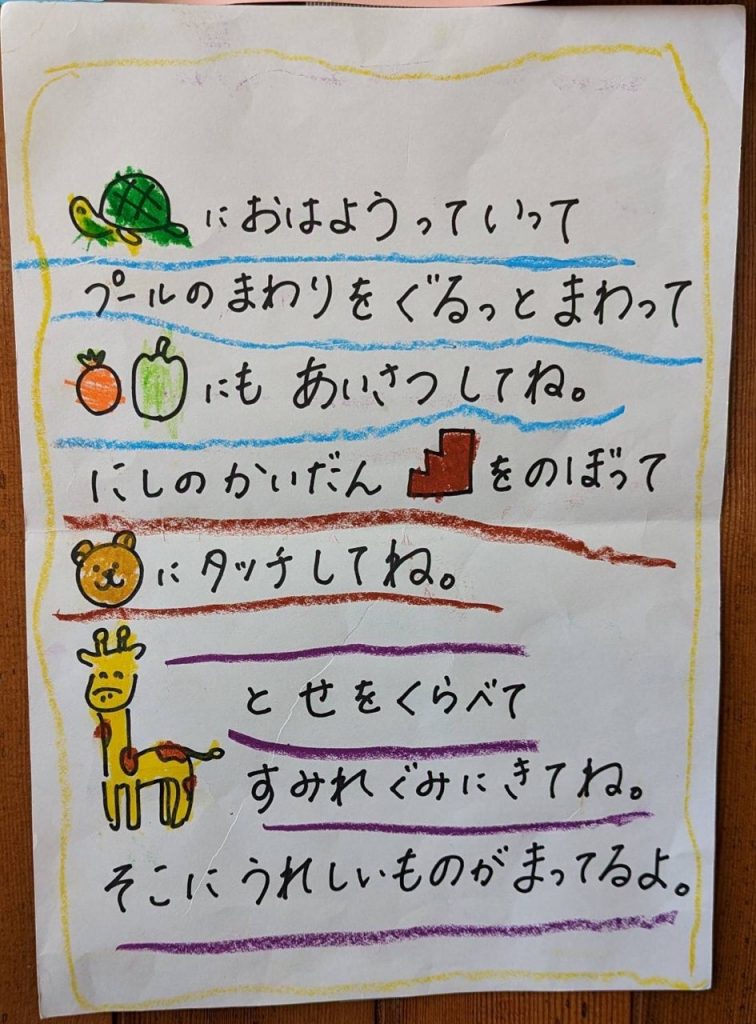 におはようっていって
プールのまわりをぐるっとまわって
にも あいさつしてね。
にしのかいだん をのぼって
にタッチしてね。
とせをくらべて
すみれぐみにきてね。
そこにうれしいものがまってるよ。